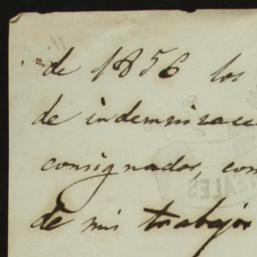 de 1856 los
de indemnizac
consignados, con
de mis trabajos